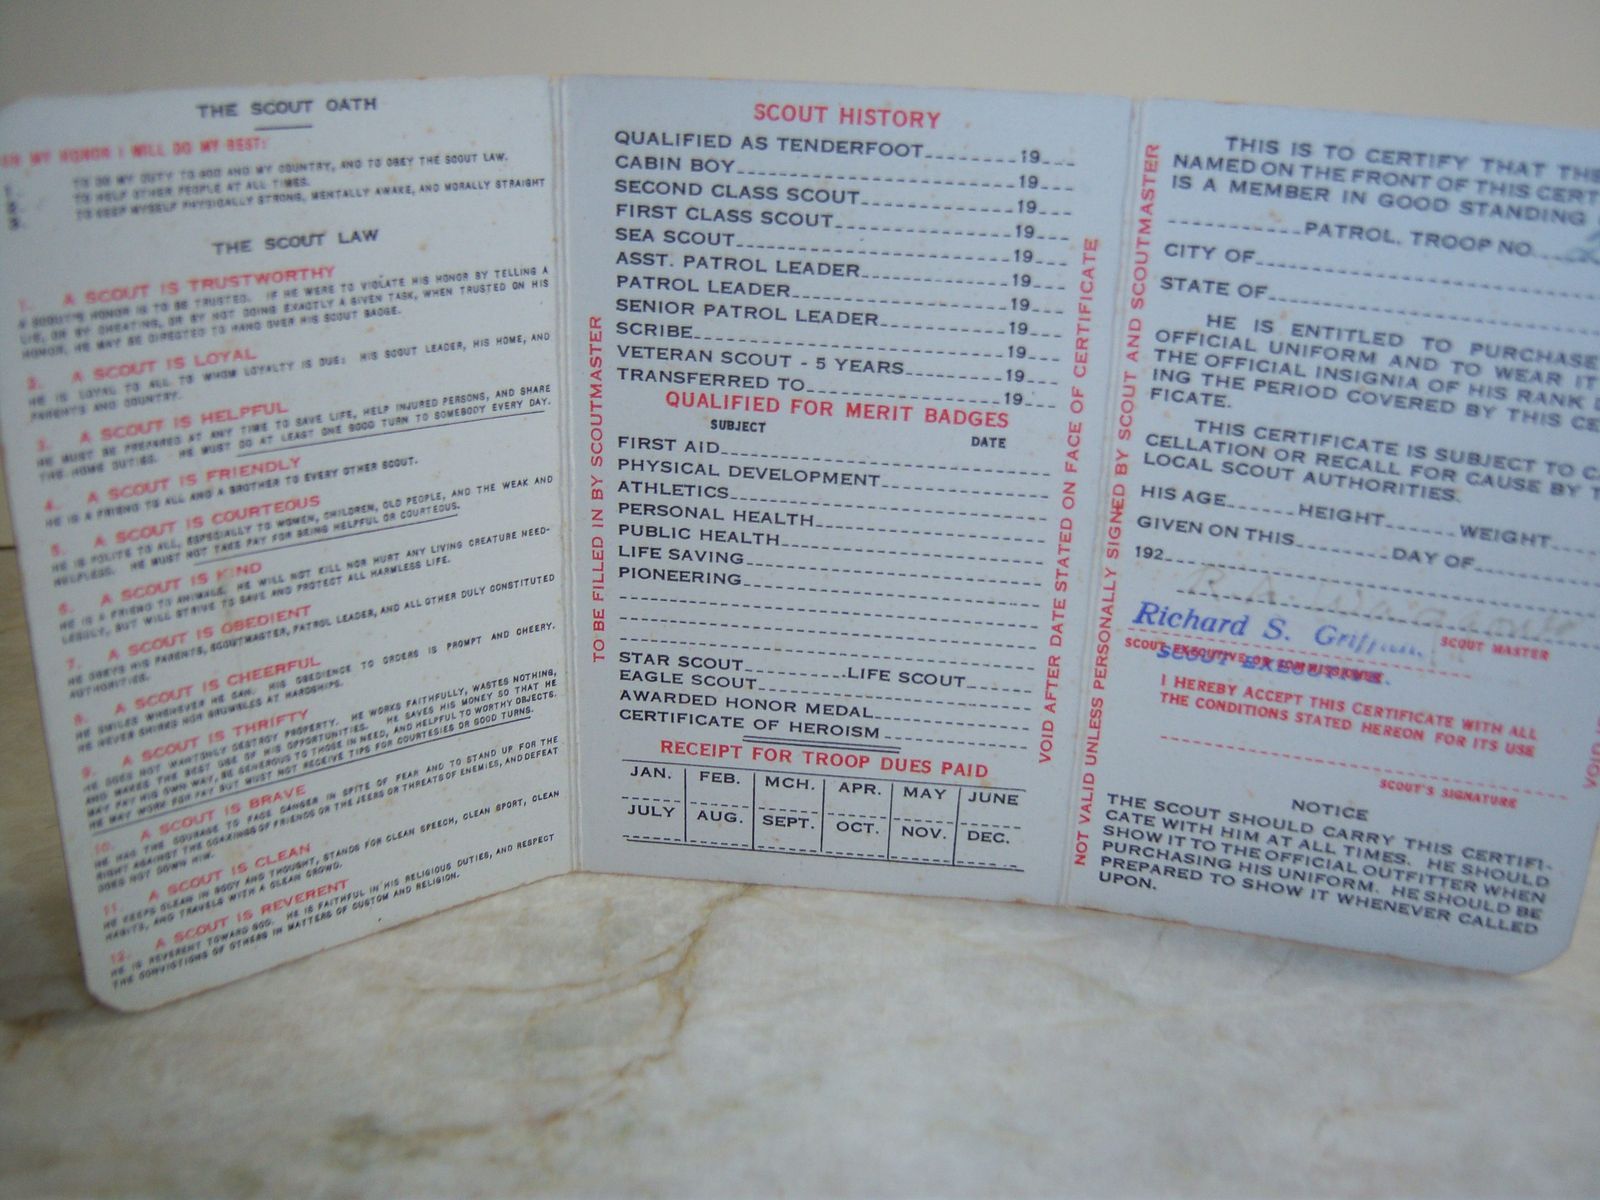 THE SCOUT OATH
ON MY HONOR I WILL DO MY BEST:
1. TO DO MY DUTY TO GOD AND MY COUNTRY, AND TO OBEY THE SCOUT LAW.
2. TO HELP OTHER PEOPLE AT ALL TIMES.
3. TO KEEP MYSELF PHYSICALLY STRONG, MENTALLY AWAKE, AND MORALLY STRAIGHT
THE SCOUT LAW
1. A SCOUT IS TRUSTWORTHY
A SCOUT'S HONOR IS TO BE TRUSTED. IF HE WERE TO VIOLATE HIS HONOR BY TELLING A
LIE, OR BY CHEATING, OR BY NOT DOING EXACTLY A GIVEN TASK, WHEN TRUSTED ON HIS
HONOR, HE MAY BE DIRECTED TO HAND OVER HIS SCOUT BADGE.
2. A SCOUT IS LOYAL
HE IS LOYAL TO ALL TO WHOM LOYALTY IS DUE: HIS SCOUT LEADER, HIS HOME, AND
PARENTS AND COUNTRY.
3. A SCOUT IS HELPFUL
HE MUST BE PREPARED AT ANY TIME TO SAVE LIFE, HELP INJURED PERSONS, AND SHARE
THE HOME DUTIES. HE MUST DO AT LEAST ONE GOOD TURN TO SOMEBODY EVERY DAY.
4. A SCOUT IS FRIENDLY
HE IS A FRIEND TO ALL AND A BROTHER TO EVERY OTHER SCOUT.
5. A SCOUT IS COURTEOUS
HE IS POLITE TO ALL, ESPECIALLY TO WOMEN, CHILDREN, OLD PEOPLE, AND THE WEAK AND
HELPLESS. HE MUST NOT TAKE PAY FOR BEING HELPFUL OR COURTEOUS.
6. A SCOUT IS KIND
HE IS A FRIEND TO ANIMALS. HE WILL NOT KILL NOR HURT ANY LIVING CREATURE NEED-
LESSLY, BUT WILL STRIVE TO SAVE AND PROTECT ALL HARMLESS LIFE.
7. A SCOUT IS OBEDIENT
HE OBEYS HIS PARENTS, SCOUTMASTER, PATROL LEADER, AND ALL OTHER DULY CONSTITUTED
AUTHORITIES.
8. A SCOUT IS CHEERFUL
HE SMILES WHENEVER HE CAN. HIS OBEDIENCE TO ORDERS IS PROMPT AND CHEERY.
HE NEVER SHIRKS NOR GRUMBLES AT HARDSHIPS.
9. A SCOUT IS THRIFTY
HE DOES NOT WANTONLY DESTROY PROPERTY. HE WORKS FAITHFULLY, WASTES NOTHING,
AND MAKES THE BEST USE OF HIS OPPORTUNITIES. HE SAVES HIS MONEY SO THAT HE
MAY PAY HIS OWN WAY, BE GENEROUS TO THOSE IN NEED, AND HELPFUL TO WORTHY OBJECTS.
HE MAY WORK FOR PAY BUT MUST NOT RECEIVE TIPS FOR COURTESIES OR GOOD TURNS.
10. A SCOUT IS BRAVE
HE HAS THE COURAGE TO FACE DANGER IN SPITE OF FEAR AND TO STAND UP FOR THE
RIGHT AGAINST THE COAXINGS OF FRIENDS OR THE JEERS OR THREATS OF ENEMIES, AND DEFEAT
DOES NOT DOWN HIM.
11. A SCOUT IS CLEAN
HE KEEPS CLEAN IN BODY AND THOUGHT, STANDS FOR CLEAN SPEECH, CLEAN SPORT, CLEAN
HABITS, AND TRAVELS WITH A CLEAN CROWD.
12. A SCOUT IS REVERENT
HE IS REVERENT TOWARD GOD. HE IS FAITHFUL IN HIS RELIGIOUS DUTIES, AND RESPECT
THE CONVICTIONS OF OTHERS IN MATTERS OF CUSTOM AND RELIGION.
TO BE FILLED IN BY SCOUTMASTER
SCOUT HISTORY
QUALIFIED AS TENDERFOOT 19
CABIN BOY 19
SECOND CLASS SCOUT 19
FIRST CLASS SCOUT 19
SEA SCOUT 19
ASST. PATROL LEADER 19
PATROL LEADER 19
SENIOR PATROL LEADER 19
SCRIBE 19
VETERAN SCOUT - 5 YEARS 19
TRANSFERRED TO 19
QUALIFIED FOR MERIT BADGES
SUBJECT DATE
FIRST AID
PHYSICAL DEVELOPMENT
ATHLETICS
PERSONAL HEALTH
PUBLIC HEALTH
LIFE SAVING
PIONEERING
STAR SCOUT LIFE SCOUT
EAGLE SCOUT
AWARDED HONOR MEDAL
CERTIFICATE OF HEROISM
RECEIPT FOR TROOP DUES PAID
JAN. FEB. MCH. APR. MAY JUNE
JULY AUG. SEPT. OCT. NOV. DEC.
VOID AFTER DATE STATED ON FACE OF CERTIFICATE
NOT VALID UNLESS PERSONALLY SIGNED BY SCOUT AND SCOUTMASTER
THIS IS TO CERTIFY THAT THE
NAMED ON THE FRONT OF THIS CERT
IS A MEMBER IN GOOD STANDING
PATROL, TROOP NO.
CITY OF
STATE OF
HE IS ENTITLED TO PURCHASE
OFFICIAL UNIFORM AND TO WEAR IT
THE OFFICIAL INSIGNIA OF HIS RANK
ING THE PERIOD COVERED BY THIS CE
FICATE.
THIS CERTIFICATE IS SUBJECT TO C
CELLATION OR RECALL FOR CAUSE BY T
LOCAL SCOUT AUTHORITIES.
HIS AGE HEIGHT WEIGHT
GIVEN ON THIS DAY OF
192
SCOUT MASTER
Richard S.
SCOUT EXECUTIVE OR COMMISSIONER
SCOUT EXECUTIVE.
I HEREBY ACCEPT THIS CERTIFICATE WITH ALL
THE CONDITIONS STATED HEREON FOR ITS USE
SCOUT'S SIGNATURE
NOTICE
THE SCOUT SHOULD CARRY THIS CERTIFI-
CATE WITH HIM AT ALL TIMES. HE SHOULD
SHOW IT TO THE OFFICIAL OUTFITTER WHEN
PURCHASING HIS UNIFORM. HE SHOULD BE
PREPARED TO SHOW IT WHENEVER CALLED
UPON.
VOID